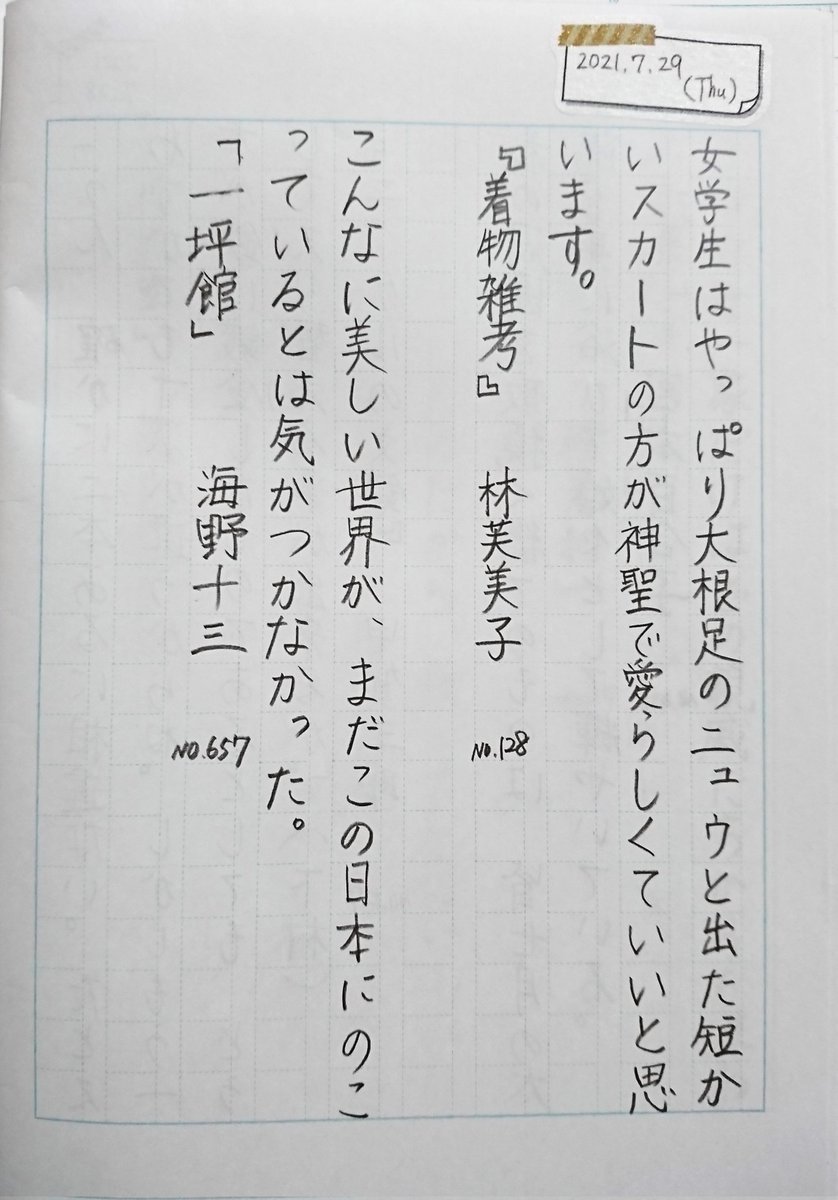 2021.7.29
(Thu)
女学生はやっぱり大根足のニュウと出た短か
いスカートの方が神聖で愛らしくていいと思
います。
『着物雑考』 林芙美子 NO.128
こんなに美しい世界が、まだこの日本にのこ
っているとは気がつかなかった。
「一坪館」 海野十三 NO.657